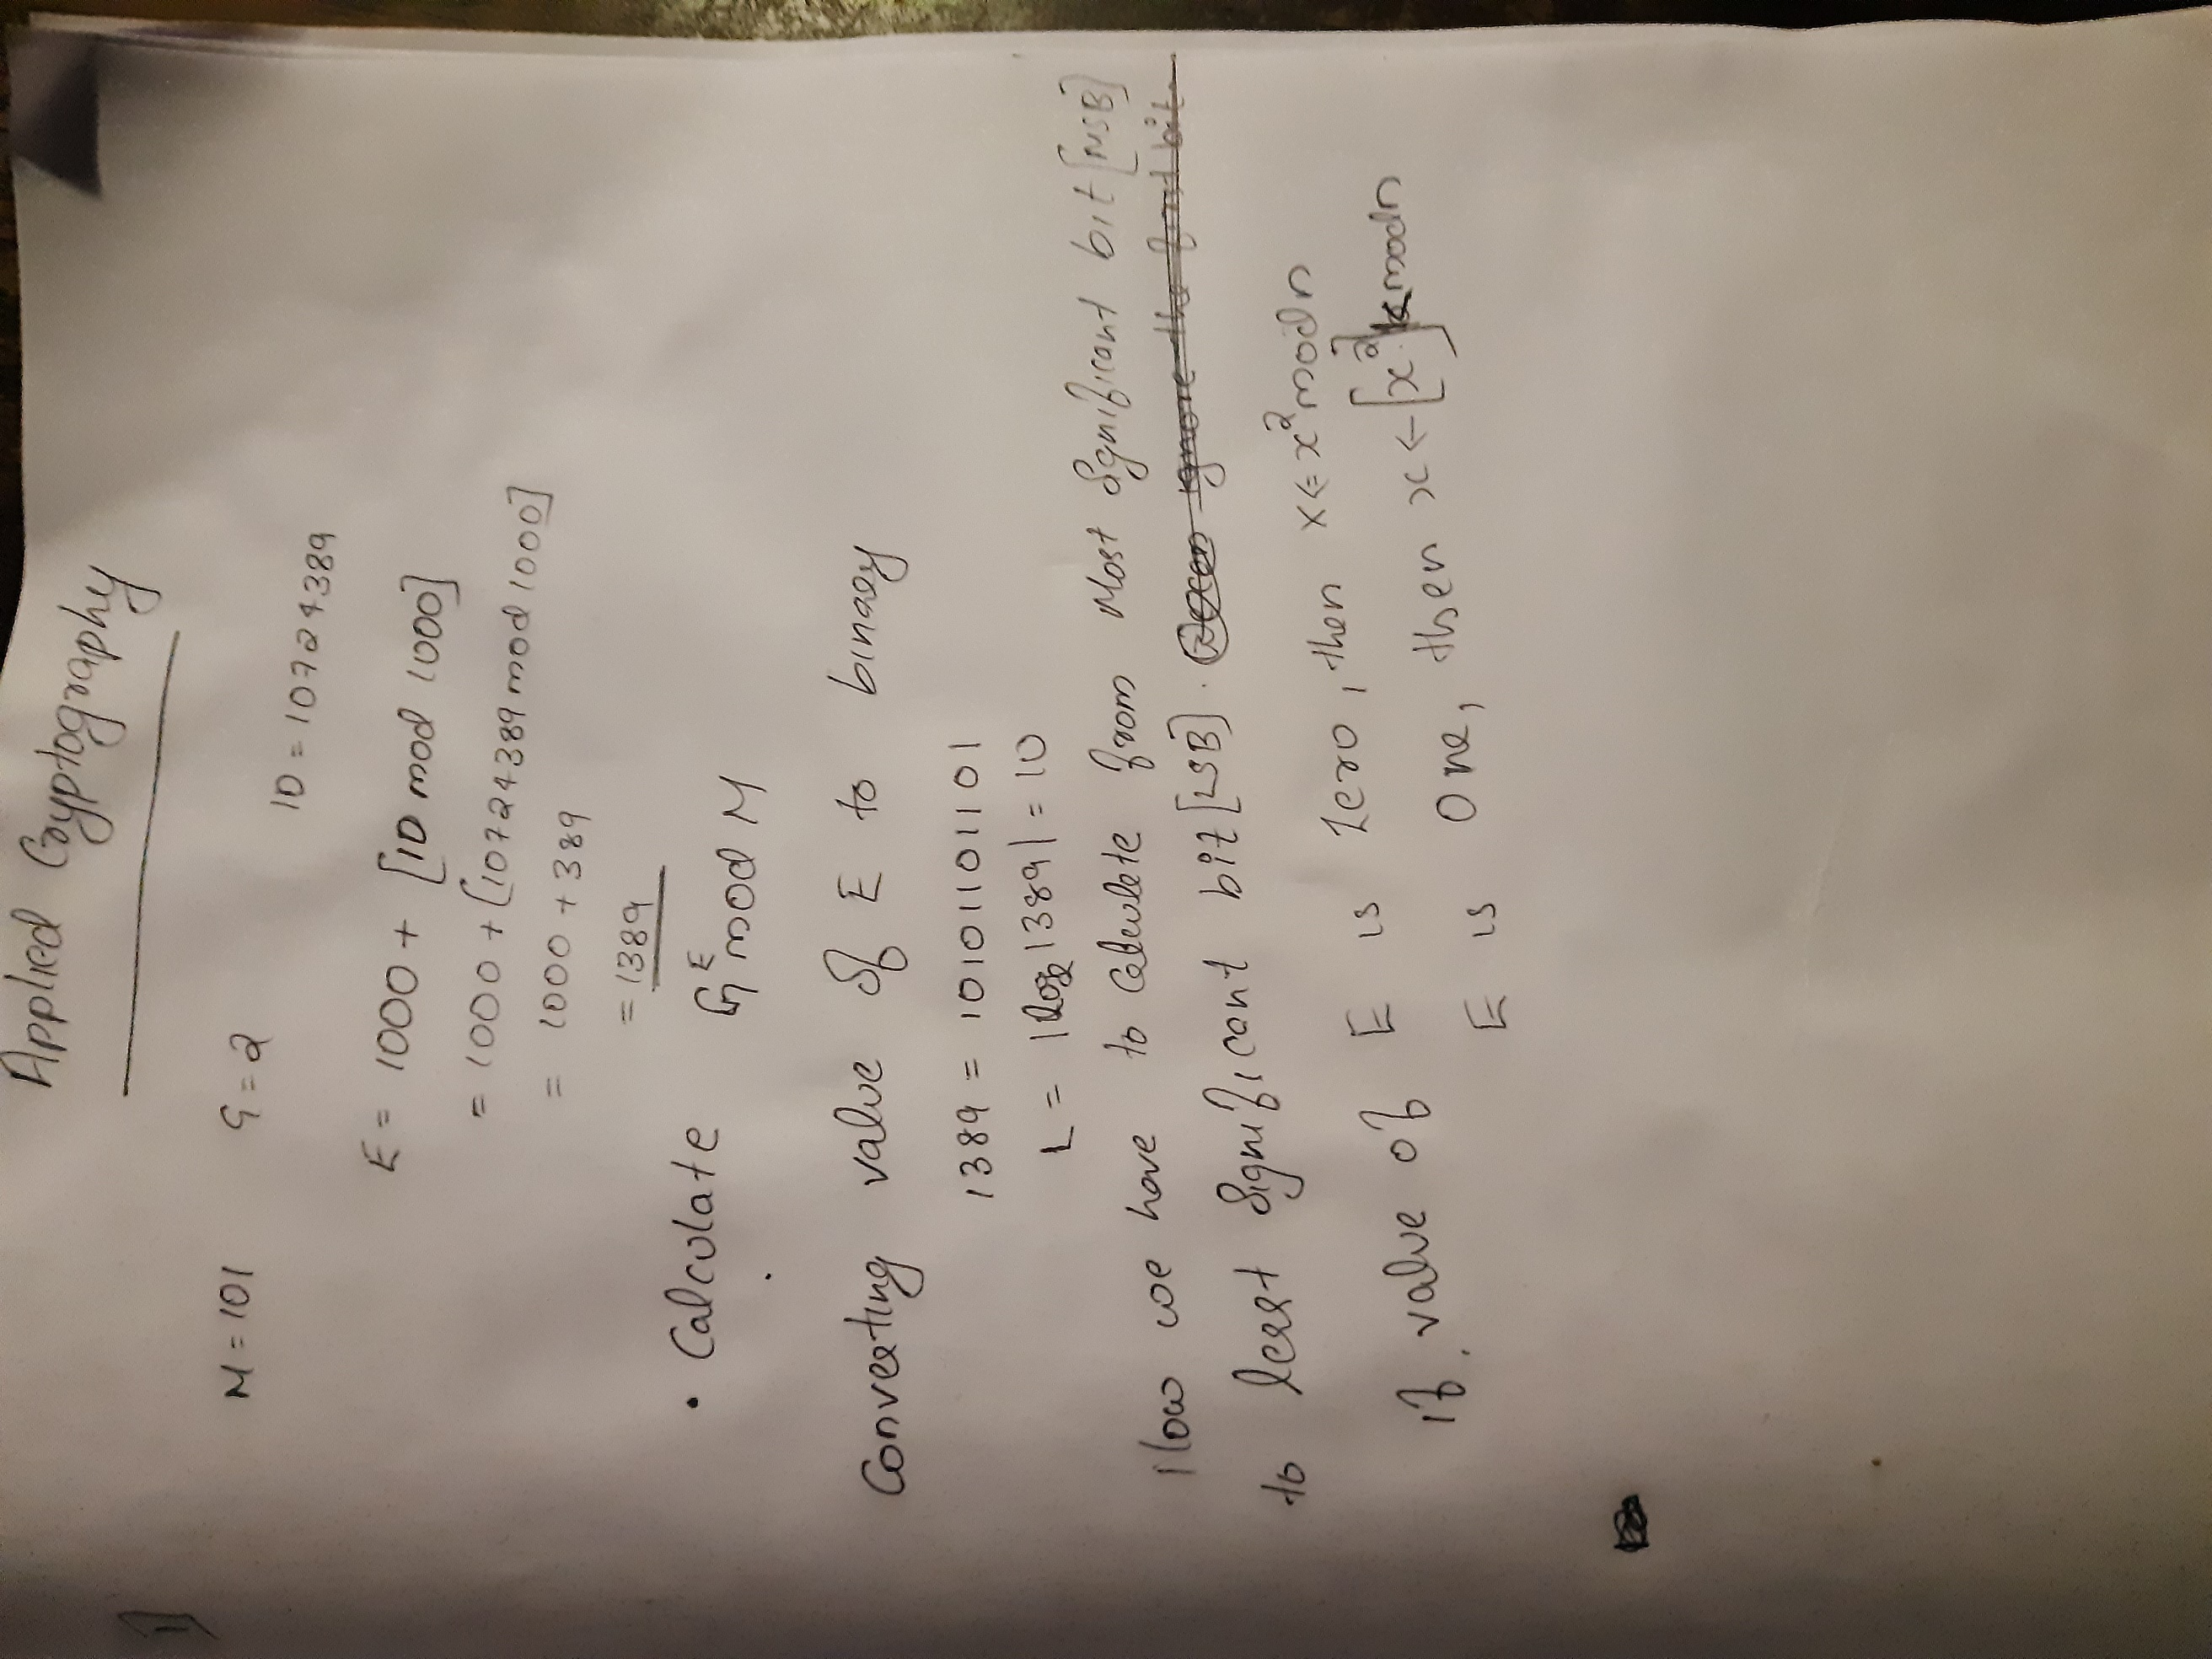 Applied Cryptography
1)
M = 101 G = 2 ID = 10724389
E = 1000 + [ID mod 1000]
= 1000 + [10724389 mod 1000]
= 1000 + 389
= 1389
• Calculate G^E mod M
Converting value of E to binary
1389 = 10101101101
L = |log 1389| = 10
Now we have to calculate from Most Significant bit [MSB]
to least Significant bit [LSB]. ignore the first bit.
if value of E is Zero, then x <= x² mod n
E is One, then x <- [x². mod n